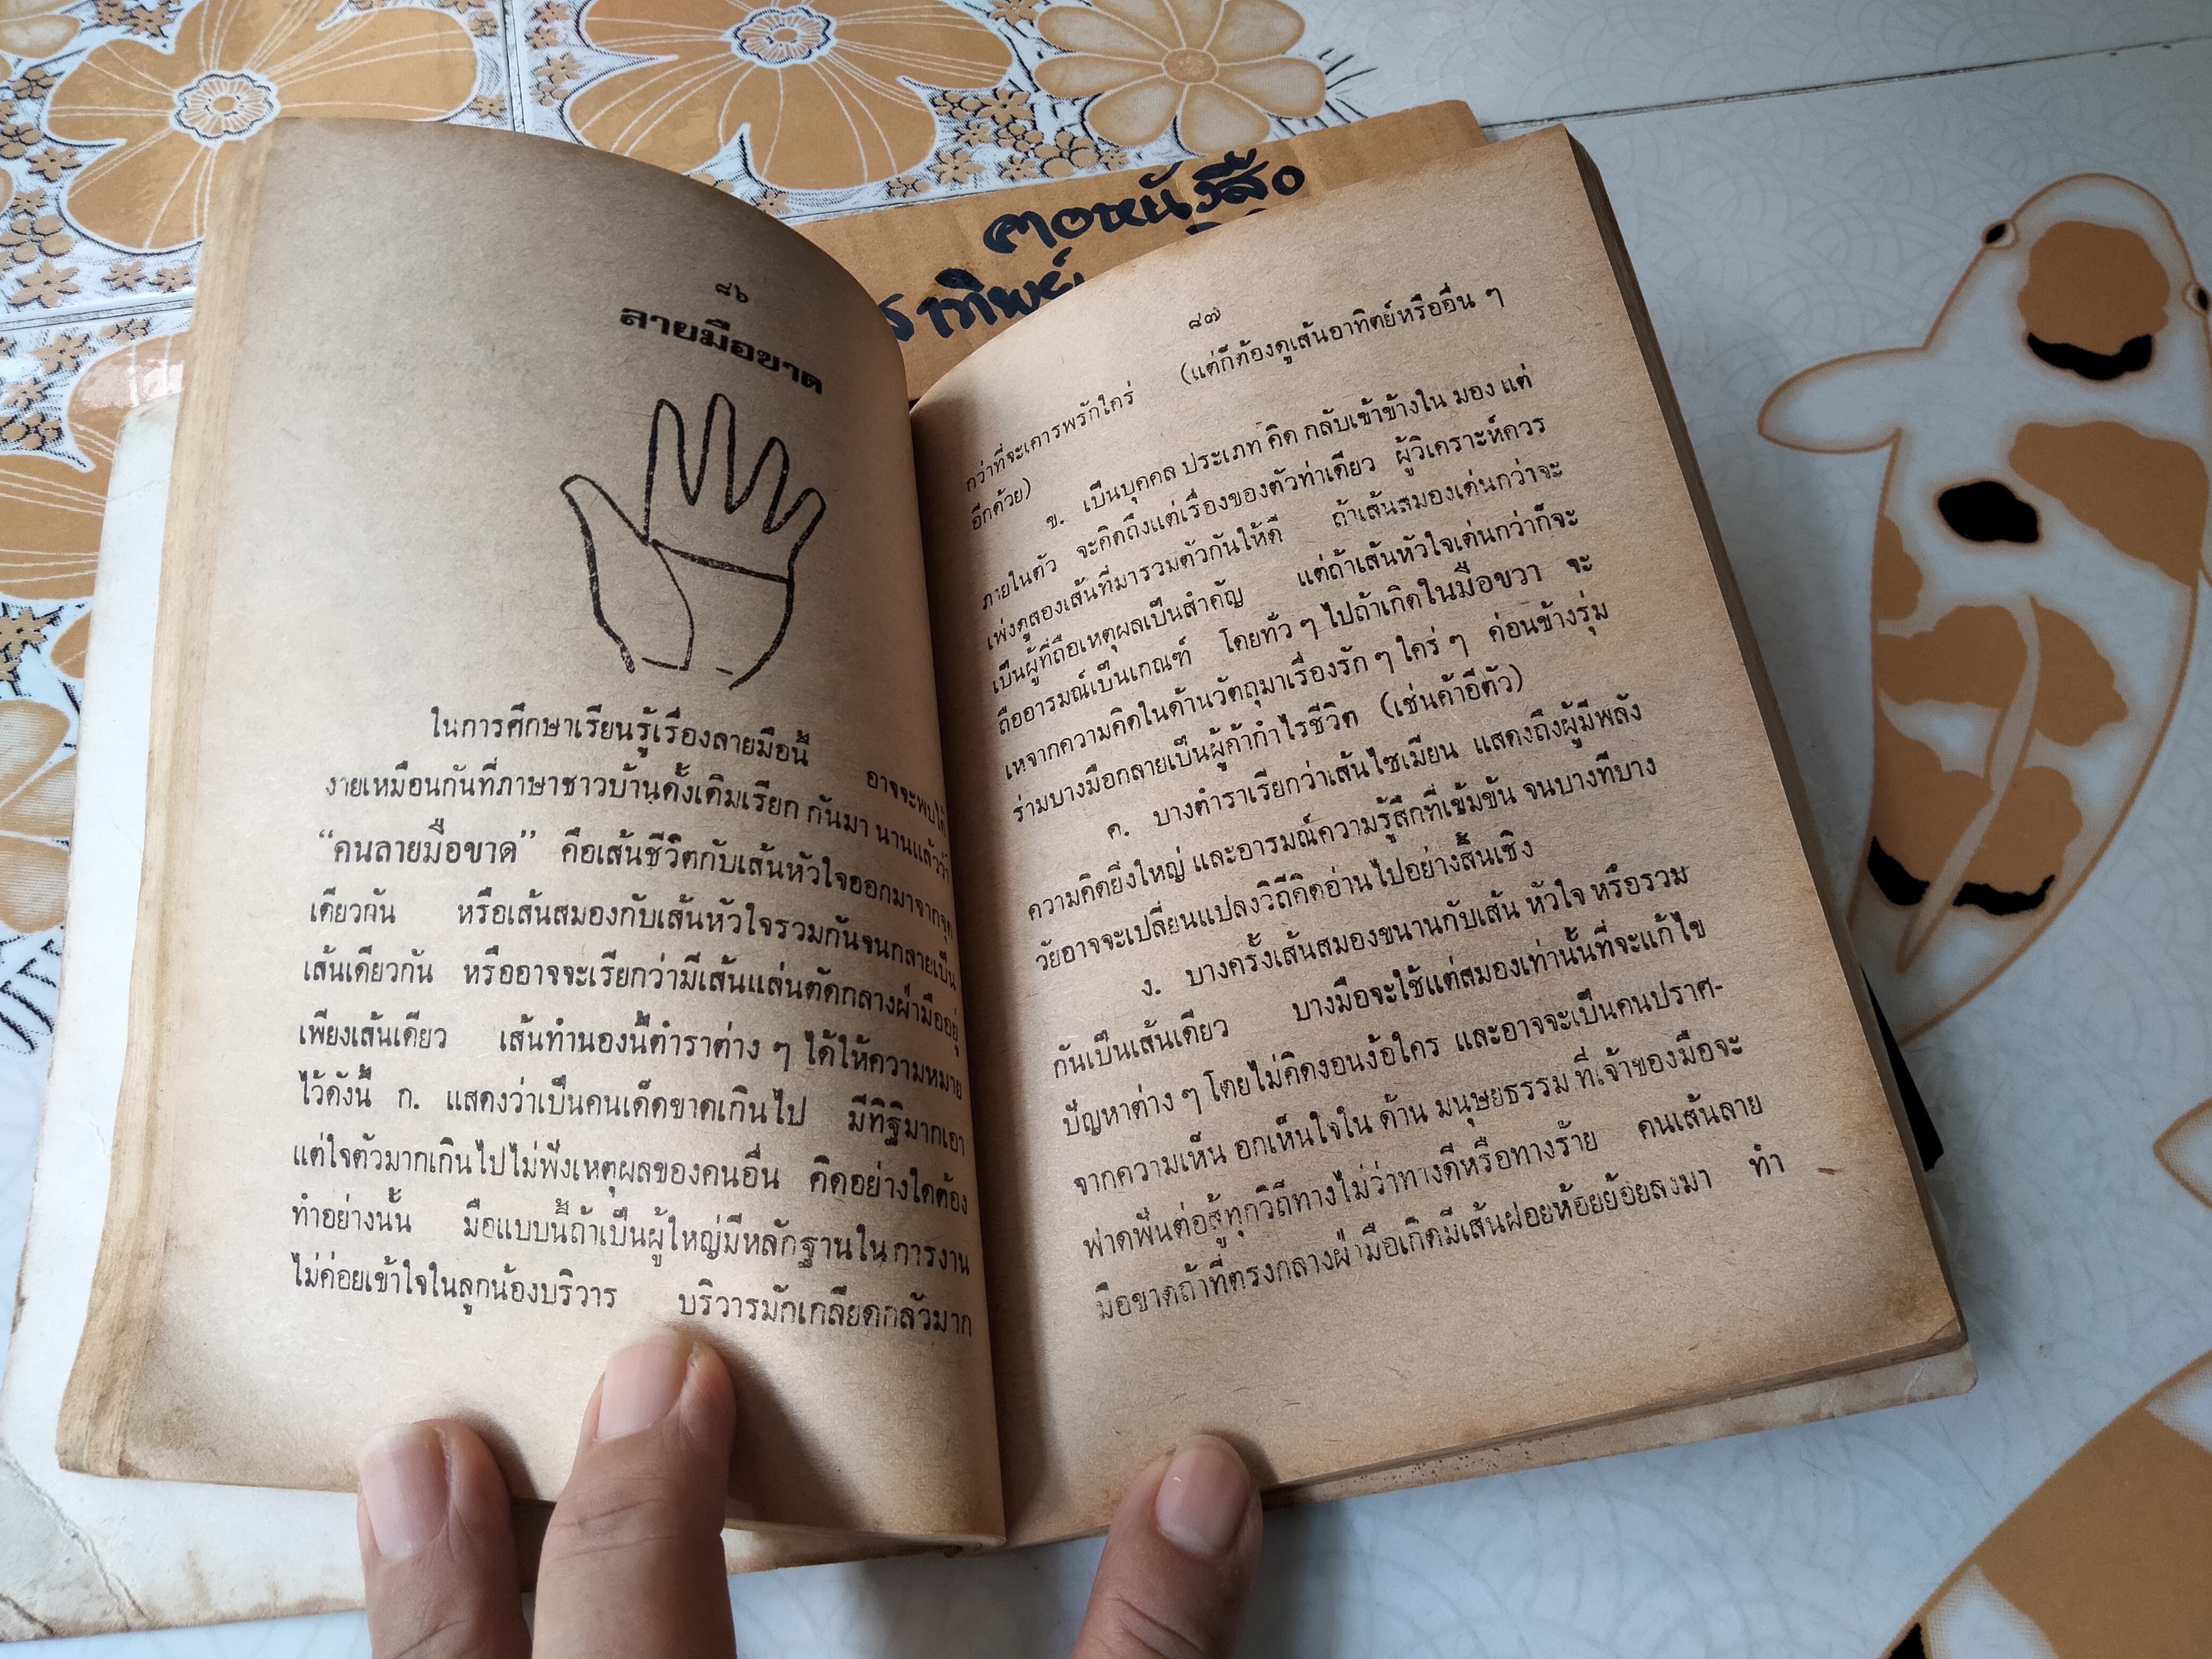 คอหนังสือ
รทิพย์
๘๖
ลายมือขาด
ในการศึกษาเรียนรู้เรื่องลายมือนี้ อาจจะพบได้
ง่ายเหมือนกันที่ภาษาชาวบ้านดั้งเดิมเรียก กันมา นานแล้วว่า
“คนลายมือขาด” คือเส้นชีวิตกับเส้นหัวใจออกมาจากจุด
เดียวกัน หรือเส้นสมองกับเส้นหัวใจรวมกันจนกลายเป็น
เส้นเดียวกัน หรืออาจจะเรียกว่ามีเส้นแล่นตัดกลางฝ่ามืออยู่
เพียงเส้นเดียว เส้นทำนองนี้ตำราต่าง ๆ ได้ให้ความหมาย
ไว้ดังนี้ ก. แสดงว่าเป็นคนเด็ดขาดเกินไป มีทิฐิมากเอา
แต่ใจตัวมากเกินไปไม่ฟังเหตุผลของคนอื่น คิดอย่างใดต้อง
ทำอย่างนั้น มือแบบนี้ถ้าเป็นผู้ใหญ่มีหลักฐานใน การงาน
ไม่ค่อยเข้าใจในลูกน้องบริวาร บริวารมักเกลียดกลัวมาก
๘๗
กว่าที่จะเคารพรักใคร่ (แต่ก็ต้องดูเส้นอาทิตย์หรืออื่น ๆ
อีกด้วย)
ข. เป็นบุคคล ประเภท คิด กลับเข้าข้างใน มอง แต่
ภายในตัว จะคิดถึงแต่เรื่องของตัวท่าเดียว ผู้วิเคราะห์ควร
เพ่งดูสองเส้นที่มารวมตัวกันให้ดี ถ้าเส้นสมองเด่นกว่าจะ
เป็นผู้ที่ถือเหตุผลเป็นสำคัญ แต่ถ้าเส้นหัวใจเด่นกว่าก็จะ
ถืออารมณ์เป็นเกณฑ์ โดยทั่ว ๆ ไปถ้าเกิดในมือขวา จะ
เหจากความคิดในด้านวัตถุมาเรื่องรัก ๆ ใคร่ ๆ ค่อนข้างรุ่ม
ร่ามบางมือกลายเป็นผู้ค้ากำไรชีวิต (เช่นค้าอีตัว)
ค. บางตำราเรียกว่าเส้นไซเมียน แสดงถึงผู้มีพลัง
ความคิดยิ่งใหญ่ และอารมณ์ความรู้สึกที่เข้มข้น จนบางทีบาง
วัยอาจจะเปลี่ยนแปลงวิถีคิดอ่านไปอย่างสิ้นเชิง
ง. บางครั้งเส้นสมองขนานกับเส้น หัวใจ หรือรวม
กันเป็นเส้นเดียว บางมือจะใช้แต่สมองเท่านั้นที่จะแก้ไข
ปัญหาต่าง ๆ โดยไม่คิดงอนง้อใคร และอาจจะเป็นคนปราศ-
จากความเห็น อกเห็นใจใน ด้าน มนุษยธรรม ที่เจ้าของมือจะ
ฟาดฟันต่อสู้ทุกวิถีทางไม่ว่าทางดีหรือทางร้าย คนเส้นลาย
มือขาดถ้าที่ตรงกลางฝ่ามือเกิดมีเส้นฝอยห้อยย้อยลงมา ทำ